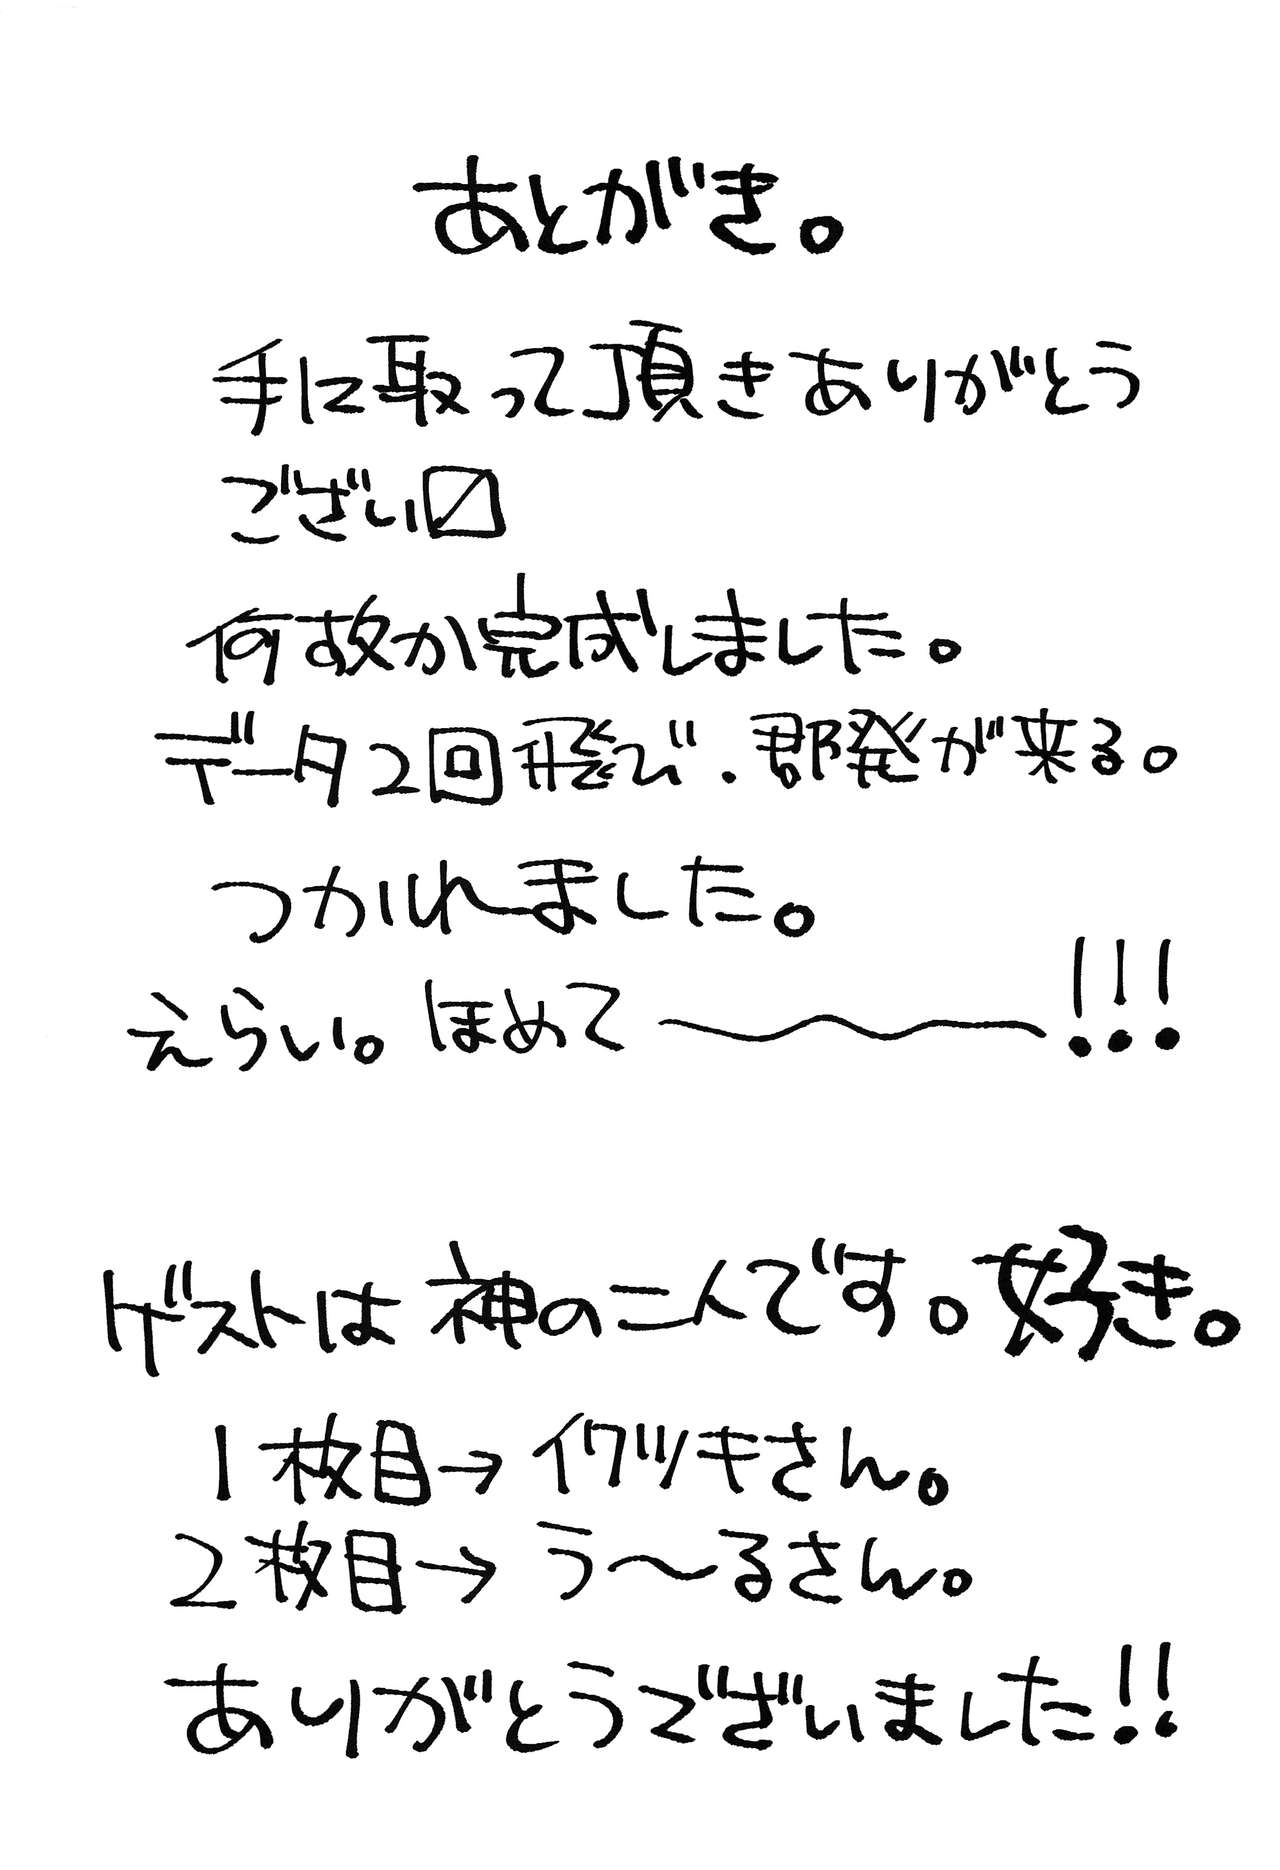 あとがき。
手に取って頂きありがとう
ござい〼
何故か完成しました。
データ2回飛び.郡発が来る。
つかれました。
えらい。ほめて〜〜!!!
ゲストは神の二人です。好き。
1枚目→イワツキさん。
2枚目→う〜るさん。
ありがとうございました!!